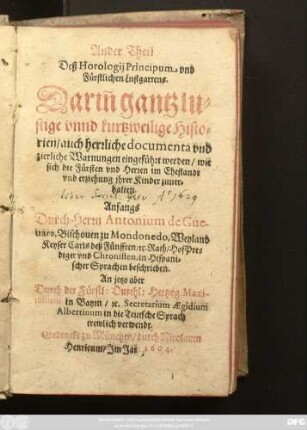 Ander Theil
Deß Horologij Principum, vnd
Fürstlichen Lustgartens.
Dariñ gantz lu-
stige vnnd kurtzweilige Histo-
rien/ auch herrliche documenta vnd
zierliche Warnungen eingeführt werden/ wie
sich die Fürsten vnd Herren im Ehestandt
vnd erziehung ihrer Kinder zuuer-
halten.
1629
Anfangs
Durch Herrn Antonium de Gue-
uara, Bischouen zu Mondonedo, Weyland
Keyser Carls deß Fünfften/ ꝛc. Rath/ Hof Pre-
diger vnd Chronisten, in Hispani-
scher Sprachen beschrieben.
An jetzo aber
Durch der Fürstl: Durchl: Hertzog Maxi-
in Bayrn/ ꝛc. Secretarium Ægidium
Albertinum in die Teutsche Sprach
trewlich verwendt.
Gedruckt zu München/ durch Nicolaum
Henricum/ Im Jar 1604.